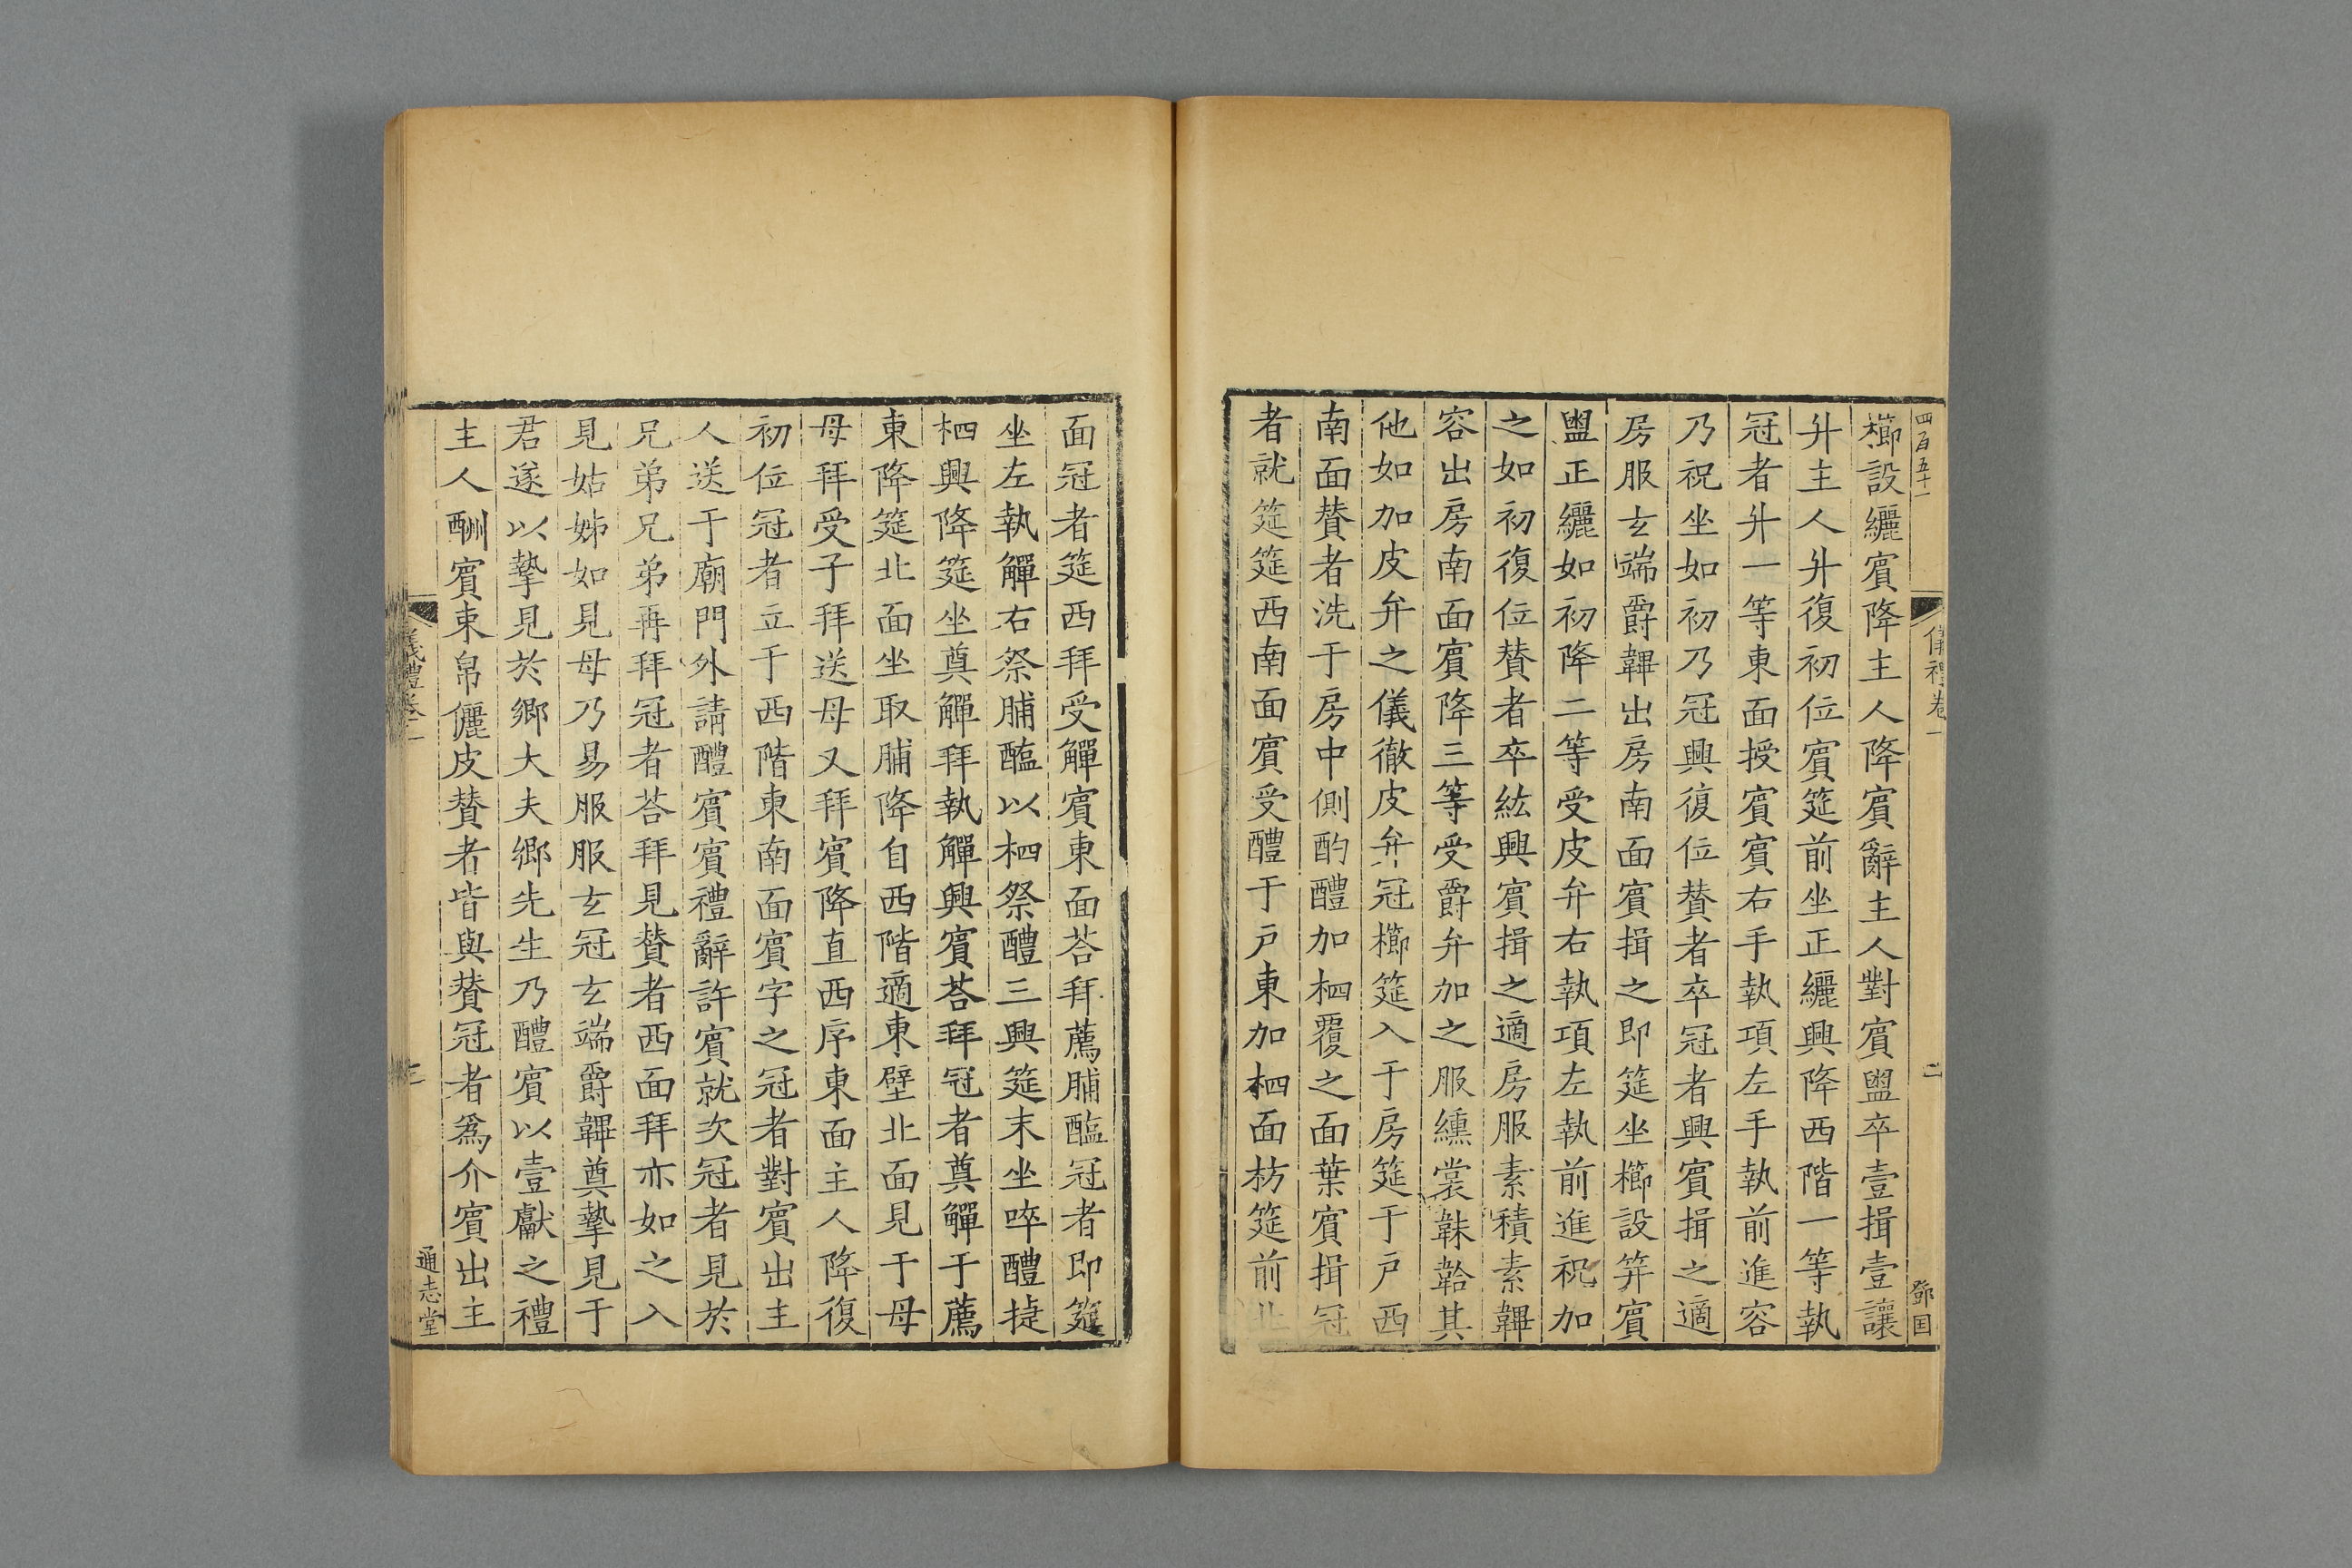 四百五十一
儀禮卷一
二
鄧国
櫛設纚賓降主人降賓辭主人對賓盥卒壹揖壹讓
升主人升復初位賓筵前坐正纚興降西階一等執
冠者升一等東面授賓賓右手執項左手執前進容
乃祝坐如初乃冠興復位贊者卒冠者興賓揖之適
房服玄端爵韠出房南面賓揖之即筵坐櫛設笄賓
盥正纚如初降二等受皮弁右執項左執前進祝加
之如初復位贊者卒紘興賓揖之適房服素積素韠
容出房南面賓降三等受爵弁加之服纁裳韎韐其
他如加皮弁之儀徹皮弁冠櫛筵入于房筵于戶西
南面贊者洗于房中側酌醴加柶覆之面葉賓揖冠
者就筵筵西南面賓受醴于戶東加柶面枋筵前北
面冠者筵西拜受觶賓東面荅拜薦脯醢冠者即筵
坐左執觶右祭脯醢以柶祭醴三興筵末坐啐醴捷
柶興降筵坐奠觶拜執觶興賓荅拜冠者奠觶于薦
東降筵北面坐取脯降自西階適東壁北面見于母
母拜受子拜送母又拜賓降直西序東面主人降復
初位冠者立于西階東南面賓字之冠者對賓出主
人送于廟門外請醴賓賓禮辭許賓就次冠者見於
兄弟兄弟再拜冠者荅拜見贊者西面拜亦如之入
見姑姊如見母乃易服服玄冠玄端爵韠奠摯見于
君遂以摯見於鄉大夫鄉先生乃醴賓以壹獻之禮
主人酬賓束帛儷皮贊者皆與贊冠者爲介賓出主
儀禮卷一
三
通志堂